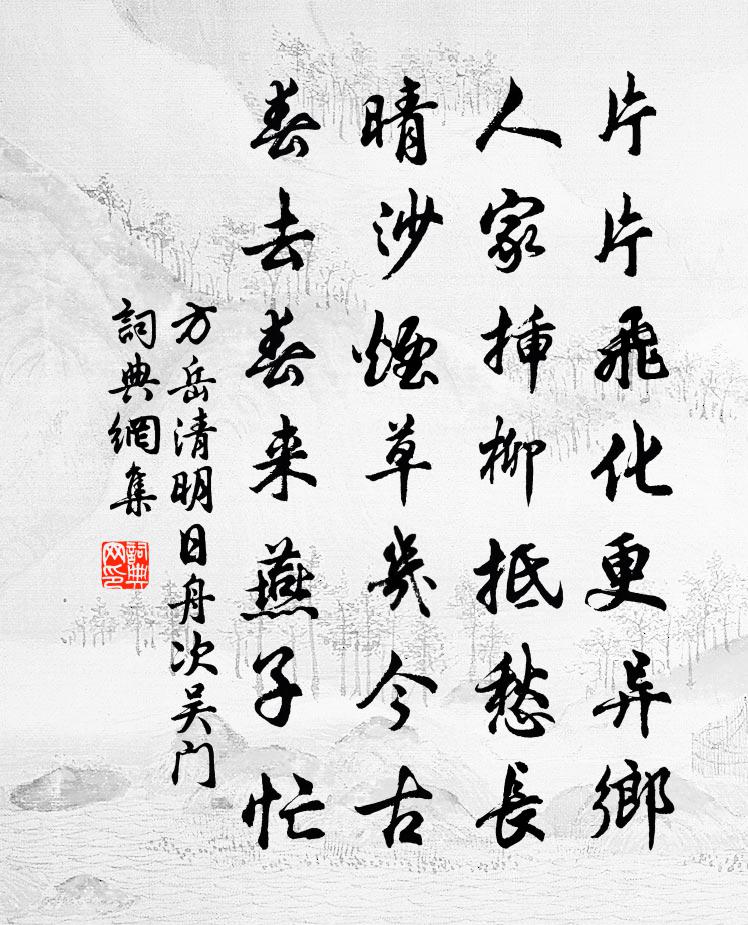 片片飛化更异鄉
人家挿柳抵愁長
晴沙煙草幾今古
春去春来燕子忙
方岳清明日舟次吴门
詞典網集
詞典网印